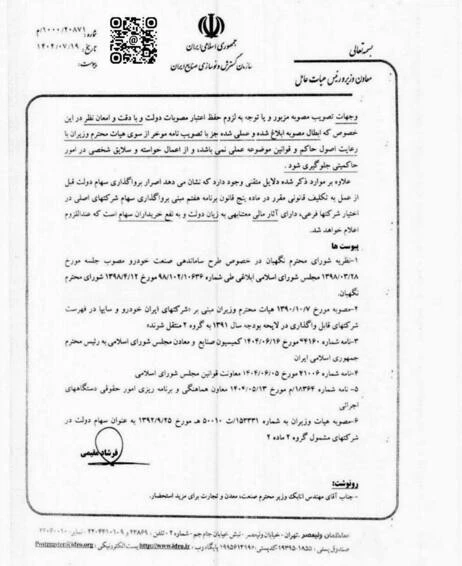 شماره: ۲۰۸۷۱/م/۱۰۰۰
تاریخ: ۱۴۰۴/۰۷/۱۹
پیوست:
جمهوری اسلامی ایران
سازمان گسترش و نوسازی صنایع ایران
بسمه‌تعالی
معاون وزیر و رئیس هیات عامل
وجهات تصویب مصوبه مزبور و یا توجه به لزوم حفظ اعتبار مصوبات دولت و با دقت و امعان نظر در این
خصوص که ابطال مصوبه ابلاغ شده و عملی شده جز با تصویب نامه موخر از سوی هیات محترم وزیران با
رعایت اصول حاکم و قوانین موضوعه عملی نمی باشد، و از اعمال خواسته و سلایق شخصی در امور
حاکمیتی جلوگیری شود.
علاوه بر موارد ذکر شده دلایل متقنی وجود دارد که نشان می دهد اصرار برواگذاری سهام دولت قبل
از عمل به تکلیف قانونی مقرر در ماده پنج قانون برنامه هفتم مبنی برواگذاری سهام شرکتهای اصلی در
اختیار شرکتها فرعی، دارای آثار مالی معتنابهی به زیان دولت و به نفع خریداران سهام است که عندالزوم
اعلام خواهد شد.
پیوست ها
۱-نظریه شورای محترم نگهبان در خصوص طرح ساماندهی صنعت خودرو مصوب جلسه مورخ
۱۳۹۸/۰۳/۲۸ مجلس شورای اسلامی ابلاقی طی شماره ۹۸/۱۰۲/۱۰۶۳۶ مورخ ۱۳۹۸/۴/۱۲ شورای محترم
نگهبان.
۲-مصوبه مورخ ۱۳۹۰/۱۰/۷ هیات محترم وزیران مبنی بر «شرکتهای ایران خودرو و سایپا در فهرست
شرکتهای قابل واگذاری در لایحه بودجه سال ۱۳۹۱ به گروه ۲ منتقل شوند»
۳-نامه شماره ۴۴۱۶۰ مورخ ۱۴۰۴/۰۶/۱۶ کمیسیون صنایع و معادن مجلس شورای اسلامی به رئیس محترم
جمهوری اسلامی ایران
۴-نامه شماره ۴۱۰۰۶ مورخ ۱۴۰۴/۰۶/۰۵ معاونت قوانین مجلس شورای اسلامی
۵- نامه شماره ۱۸۳۶۴/م مورخ ۱۴۰۴/۰۵/۱۳ معاون هماهنگی و برنامه ریزی امور حقوقی دستگاههای
اجرائی
۶-مصوبه هیات وزیران به شماره ۱۵۳۳۳۱/ت ۵۰۰۱۰ هـ مورخ ۱۳۹۲/۹/۲۵ به عنوان سهام دولت در
شرکتهای مشمول گروه ۲ ماده ۲
فرشاد مقیمی
رونوشت:
- جناب آقای مهندس اتابک وزیر محترم صنعت، معدن و تجارت برای مزید استحضار.
تهران، خیابان ولیعصر، نبش خیابان جام جم، شماره ۲
پایگاه وب: http://www.idro.ir پست الکترونیکی: Postmaster@idro.org